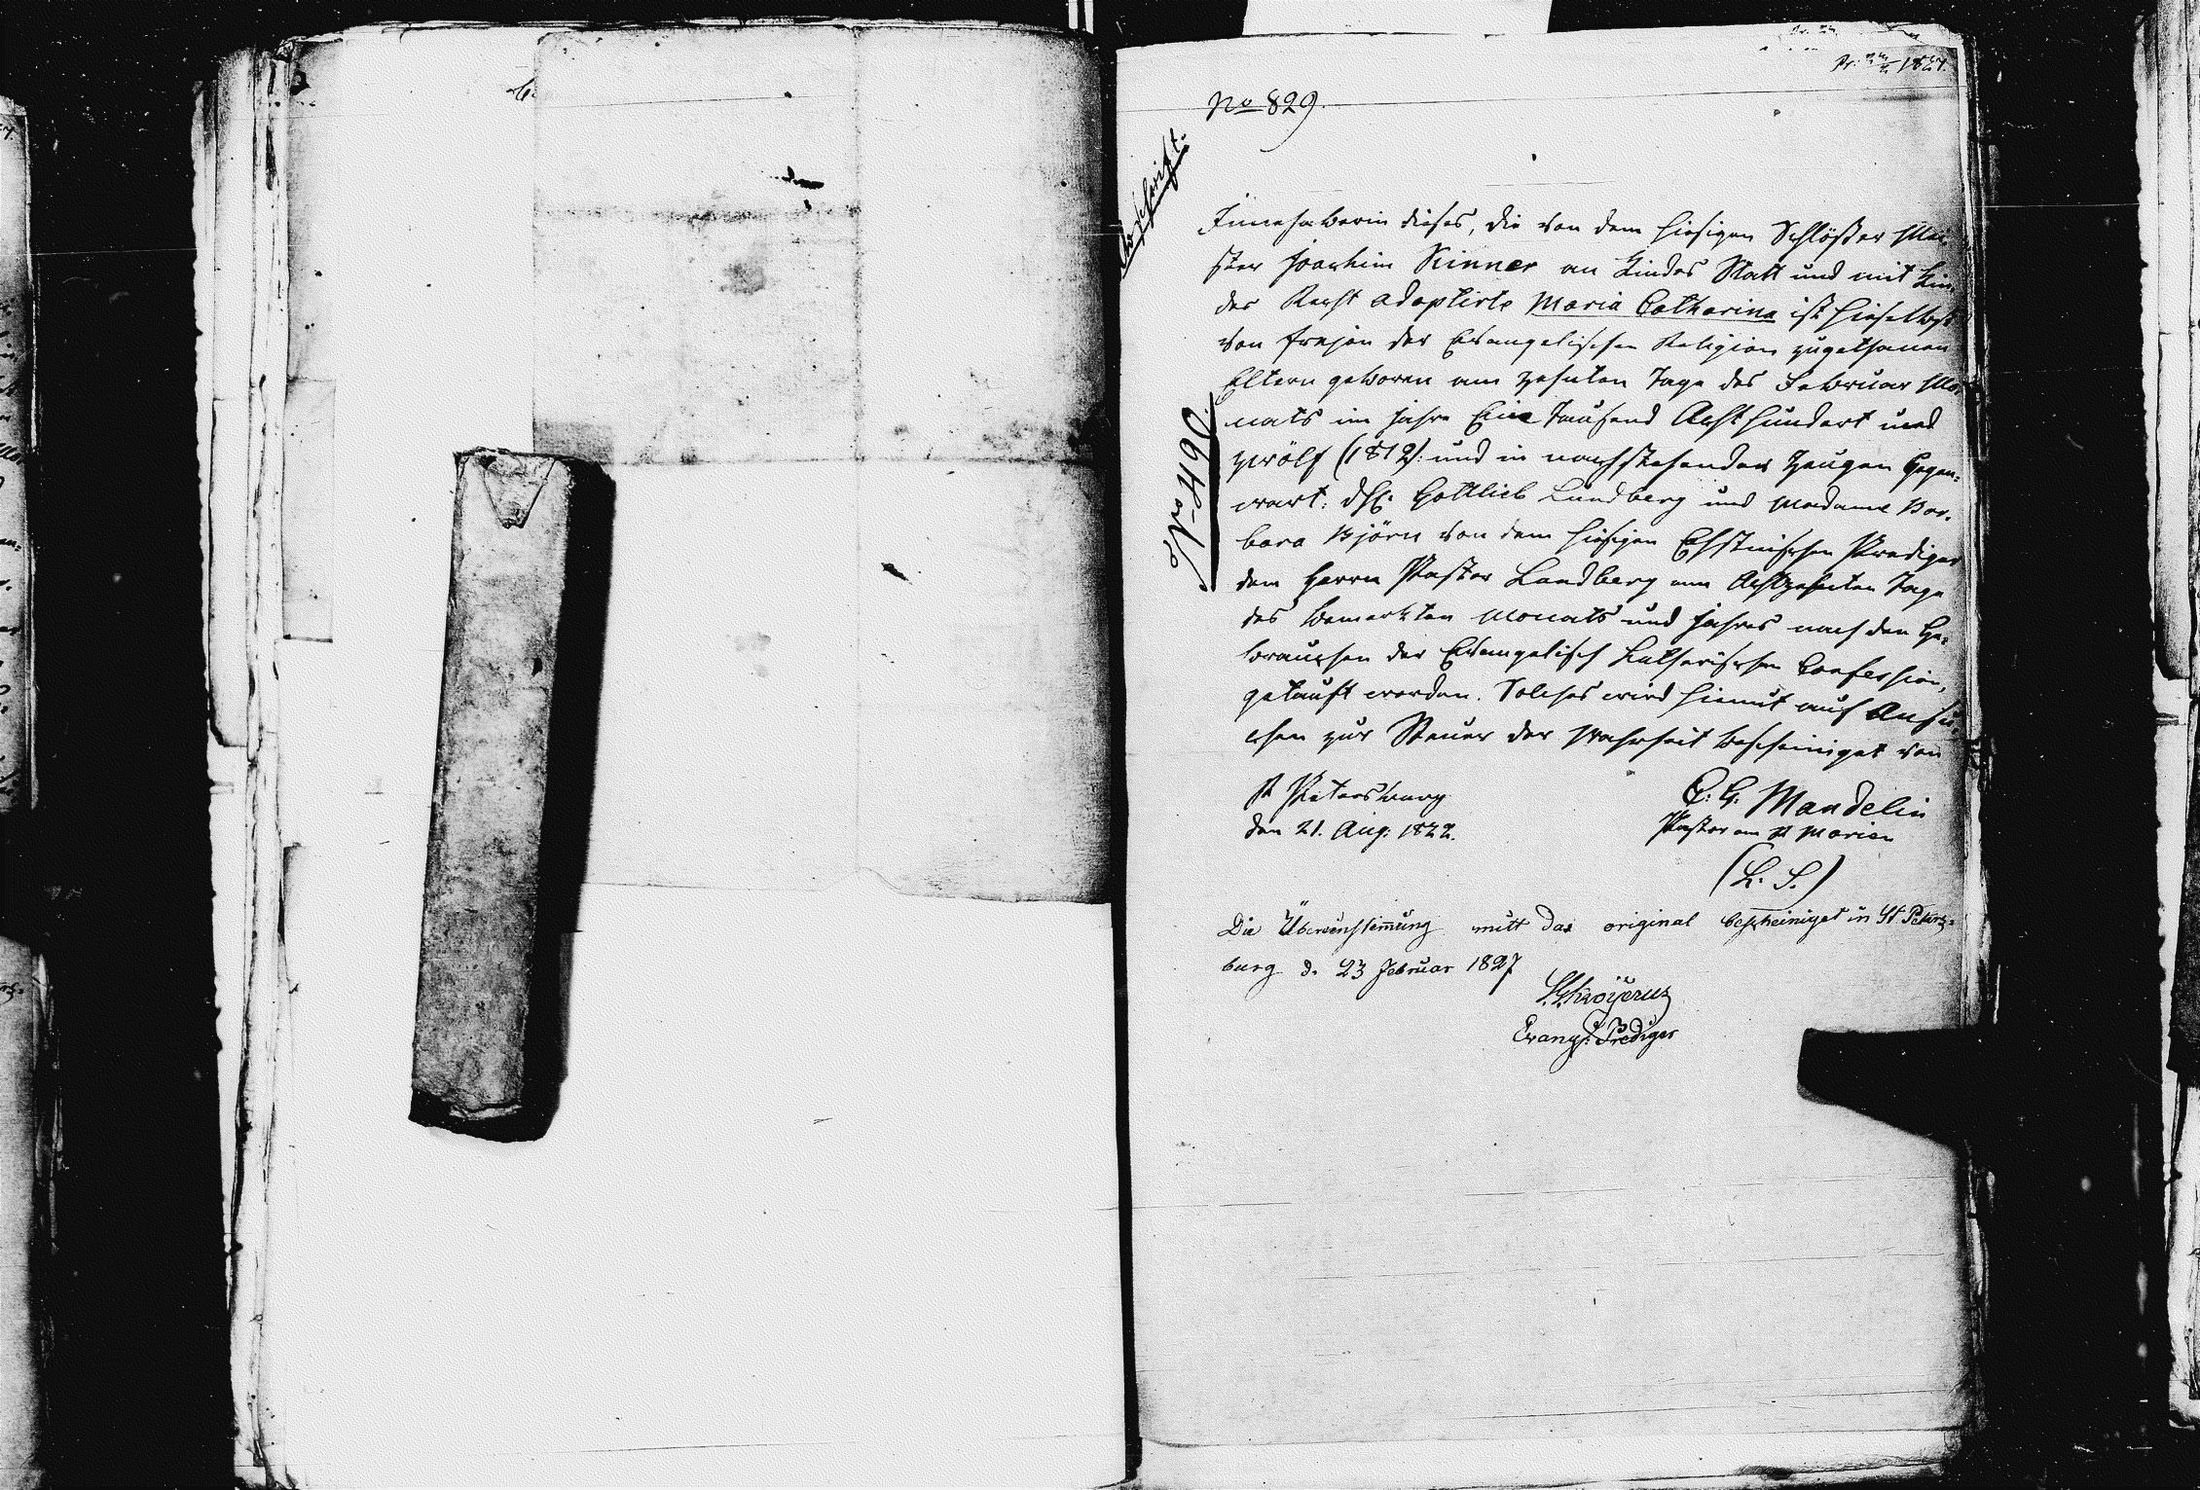 Pr: 1827.
No 829.
Abschrift.
No 490.
Innehaberin dieses, die von dem hiesigen Schlößer Mei-
ster Joachim Kinner an Kindes Statt und mit Kin-
des Recht adoptirte Maria Catharina ist hieselbst
von freyen der Evangelischen Religion zugethanen
Eltern geboren am zehnten Tage des Februar Mo-
nats im Jahre Eine Tausend Acht hundert und
zwölf (1812): und in nachstehender Zeugen Gegen-
wart: Gottlieb Lundberg und Madame Bar-
bara Björn von dem hiesigen Ehstnischen Prediger
dem Herrn Pastor Landberg am Achtzehnten Tage
des bemerkten Monats und Jahres nach den Ge-
bräuchen der Evangelisch Lutherischen Confession,
getauft worden. Solches wird hiemit auf Ansu-
chen zur Steuer der Wahrheit bescheiniget von
St Petersburg
den 21. Aug: 1822.
C. G. Mandelin
Pastor an St Marien
(L. S.)
Die Übereinstimung mitt das original bescheiniget in St Peters-
burg d. 23 Februar 1827
Evang. Prediger